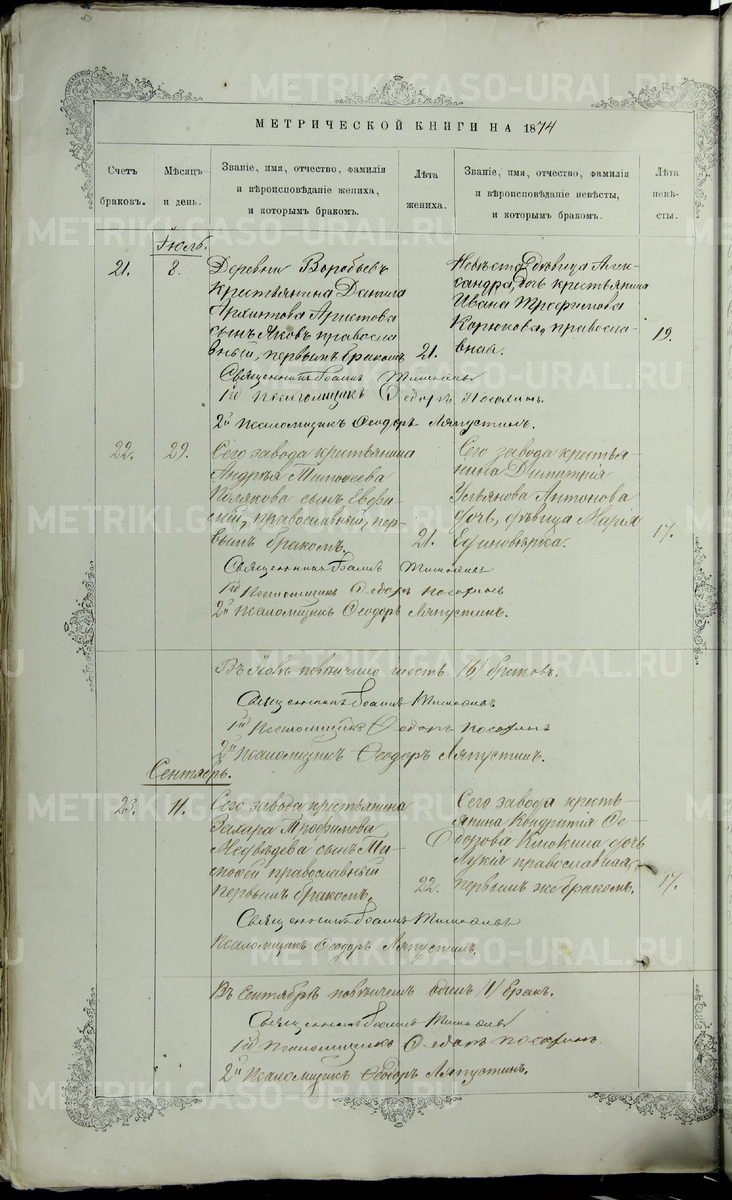 METRIKI.GASO-URAL.RU
МЕТРИЧЕСКОЙ КНИГИ НА 1874
Счетъ браковъ.
Мѣсяцъ и день.
Званіе, имя, отчество, фамилія
и вѣроисповѣданіе жениха,
и которымъ бракомъ.
Лѣта жениха.
Званіе, имя, отчество, фамилія
и вѣроисповѣданіе невѣсты,
и которымъ бракомъ.
Лѣта невѣсты.
Іюль.
21.
8.
Деревни Воробьевъ
крестьянина Данила
Архиптова Аристова
сынъ Яковъ правосла
вный, первымъ бракомъ
21.
Невѣста дѣвица Алек-
сандра, дочь крестьянина
Ивана Трофимова
Корюкова, правосла-
вная.
19.
Священникъ Іоаннъ
1й Псаломщикъ Ѳедоръ
2й Псаломщикъ Ѳеодоръ Ляпустинъ.
22.
29.
Сего завода крестьянина
Андрея Тимофеева
Полякова сынъ Евфи-
мій, православный, пер-
вымъ бракомъ.
21.
Сего завода крестья-
нина Димитрія
Устьянова Антонова
дочь, дѣвица Марія
Единовѣрка.
17.
Священникъ Іоаннъ
1й Псаломщикъ Ѳедоръ
2й Псаломщикъ Ѳеодоръ Ляпустинъ.
Въ Іюлѣ повѣнчано шесть /6/ браковъ.
Священникъ Іоаннъ
1й Псаломщикъ Ѳедоръ
2й Псаломщикъ Ѳеодоръ Ляпустинъ.
Сентябрь.
23.
11.
Сего завода крестьянина
Захара Трофимова
Медвѣдева сынъ Ти-
мофей православный
первымъ бракомъ.
22.
Сего завода кресть-
янина Кондратія Ѳе-
дорова Клюкина дочь
Лукія православная,
первымъ же бракомъ.
17.
Священникъ Іоаннъ
Псаломщикъ Ѳеодоръ Ляпустинъ.
Въ Сентябрѣ повѣнчанъ одинъ /1/ бракъ.
Священникъ Іоаннъ
1й Псаломщикъ Ѳедоръ
2й Псаломщикъ Ѳеодоръ Ляпустинъ.